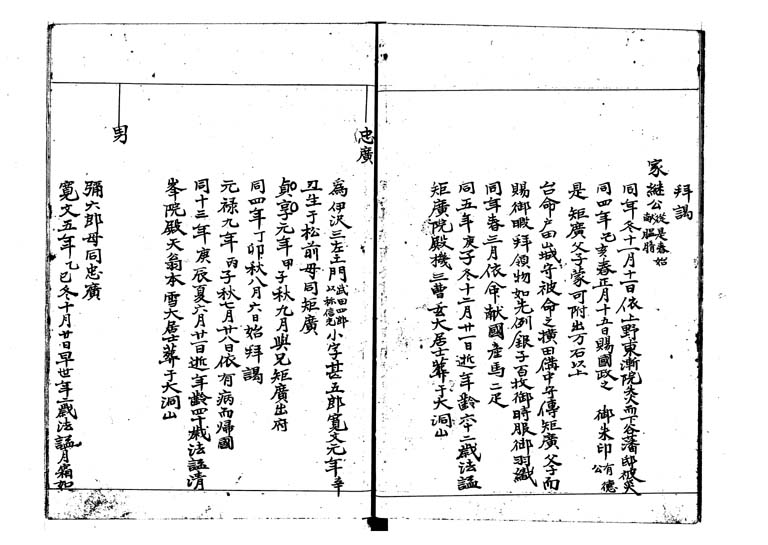 拝謁
家継公従是春始献膃肭
同年冬十一月十一日依上野東漸院失火而下谷藩邸被災
同四年己亥春正月十五日賜國政之 御朱印有徳公
是矩廣父子蒙可附出万石以上
台命戸田山城守被命之横田備中守傳矩廣父子而
賜御暇拜領物如先例銀子百枚御時服御羽織
同年春三月依命献國産馬二疋
同五年庚子冬十二月廿一日逝年齢六十二歳法謚
矩廣院殿機三曹玄大居士葬于大洞山
忠廣
為伊沢三左エ門武田四郎以林信光小字甚五郎寛文元年辛
丑生于松前母同矩廣
貞享元年甲子秋九月與兄矩廣出府
同四年丁卯秋八月六日始拜謁
元禄九年丙子秋七月廿八日依有病而帰國
同十三年庚辰夏六月廿一日逝年齢四十歳法謚清
峯院殿天翁本雪大居士葬于大洞山
男
彌六郎母同忠廣
寛文五年乙巳冬十月廿日早世年二歳法謚月霜如